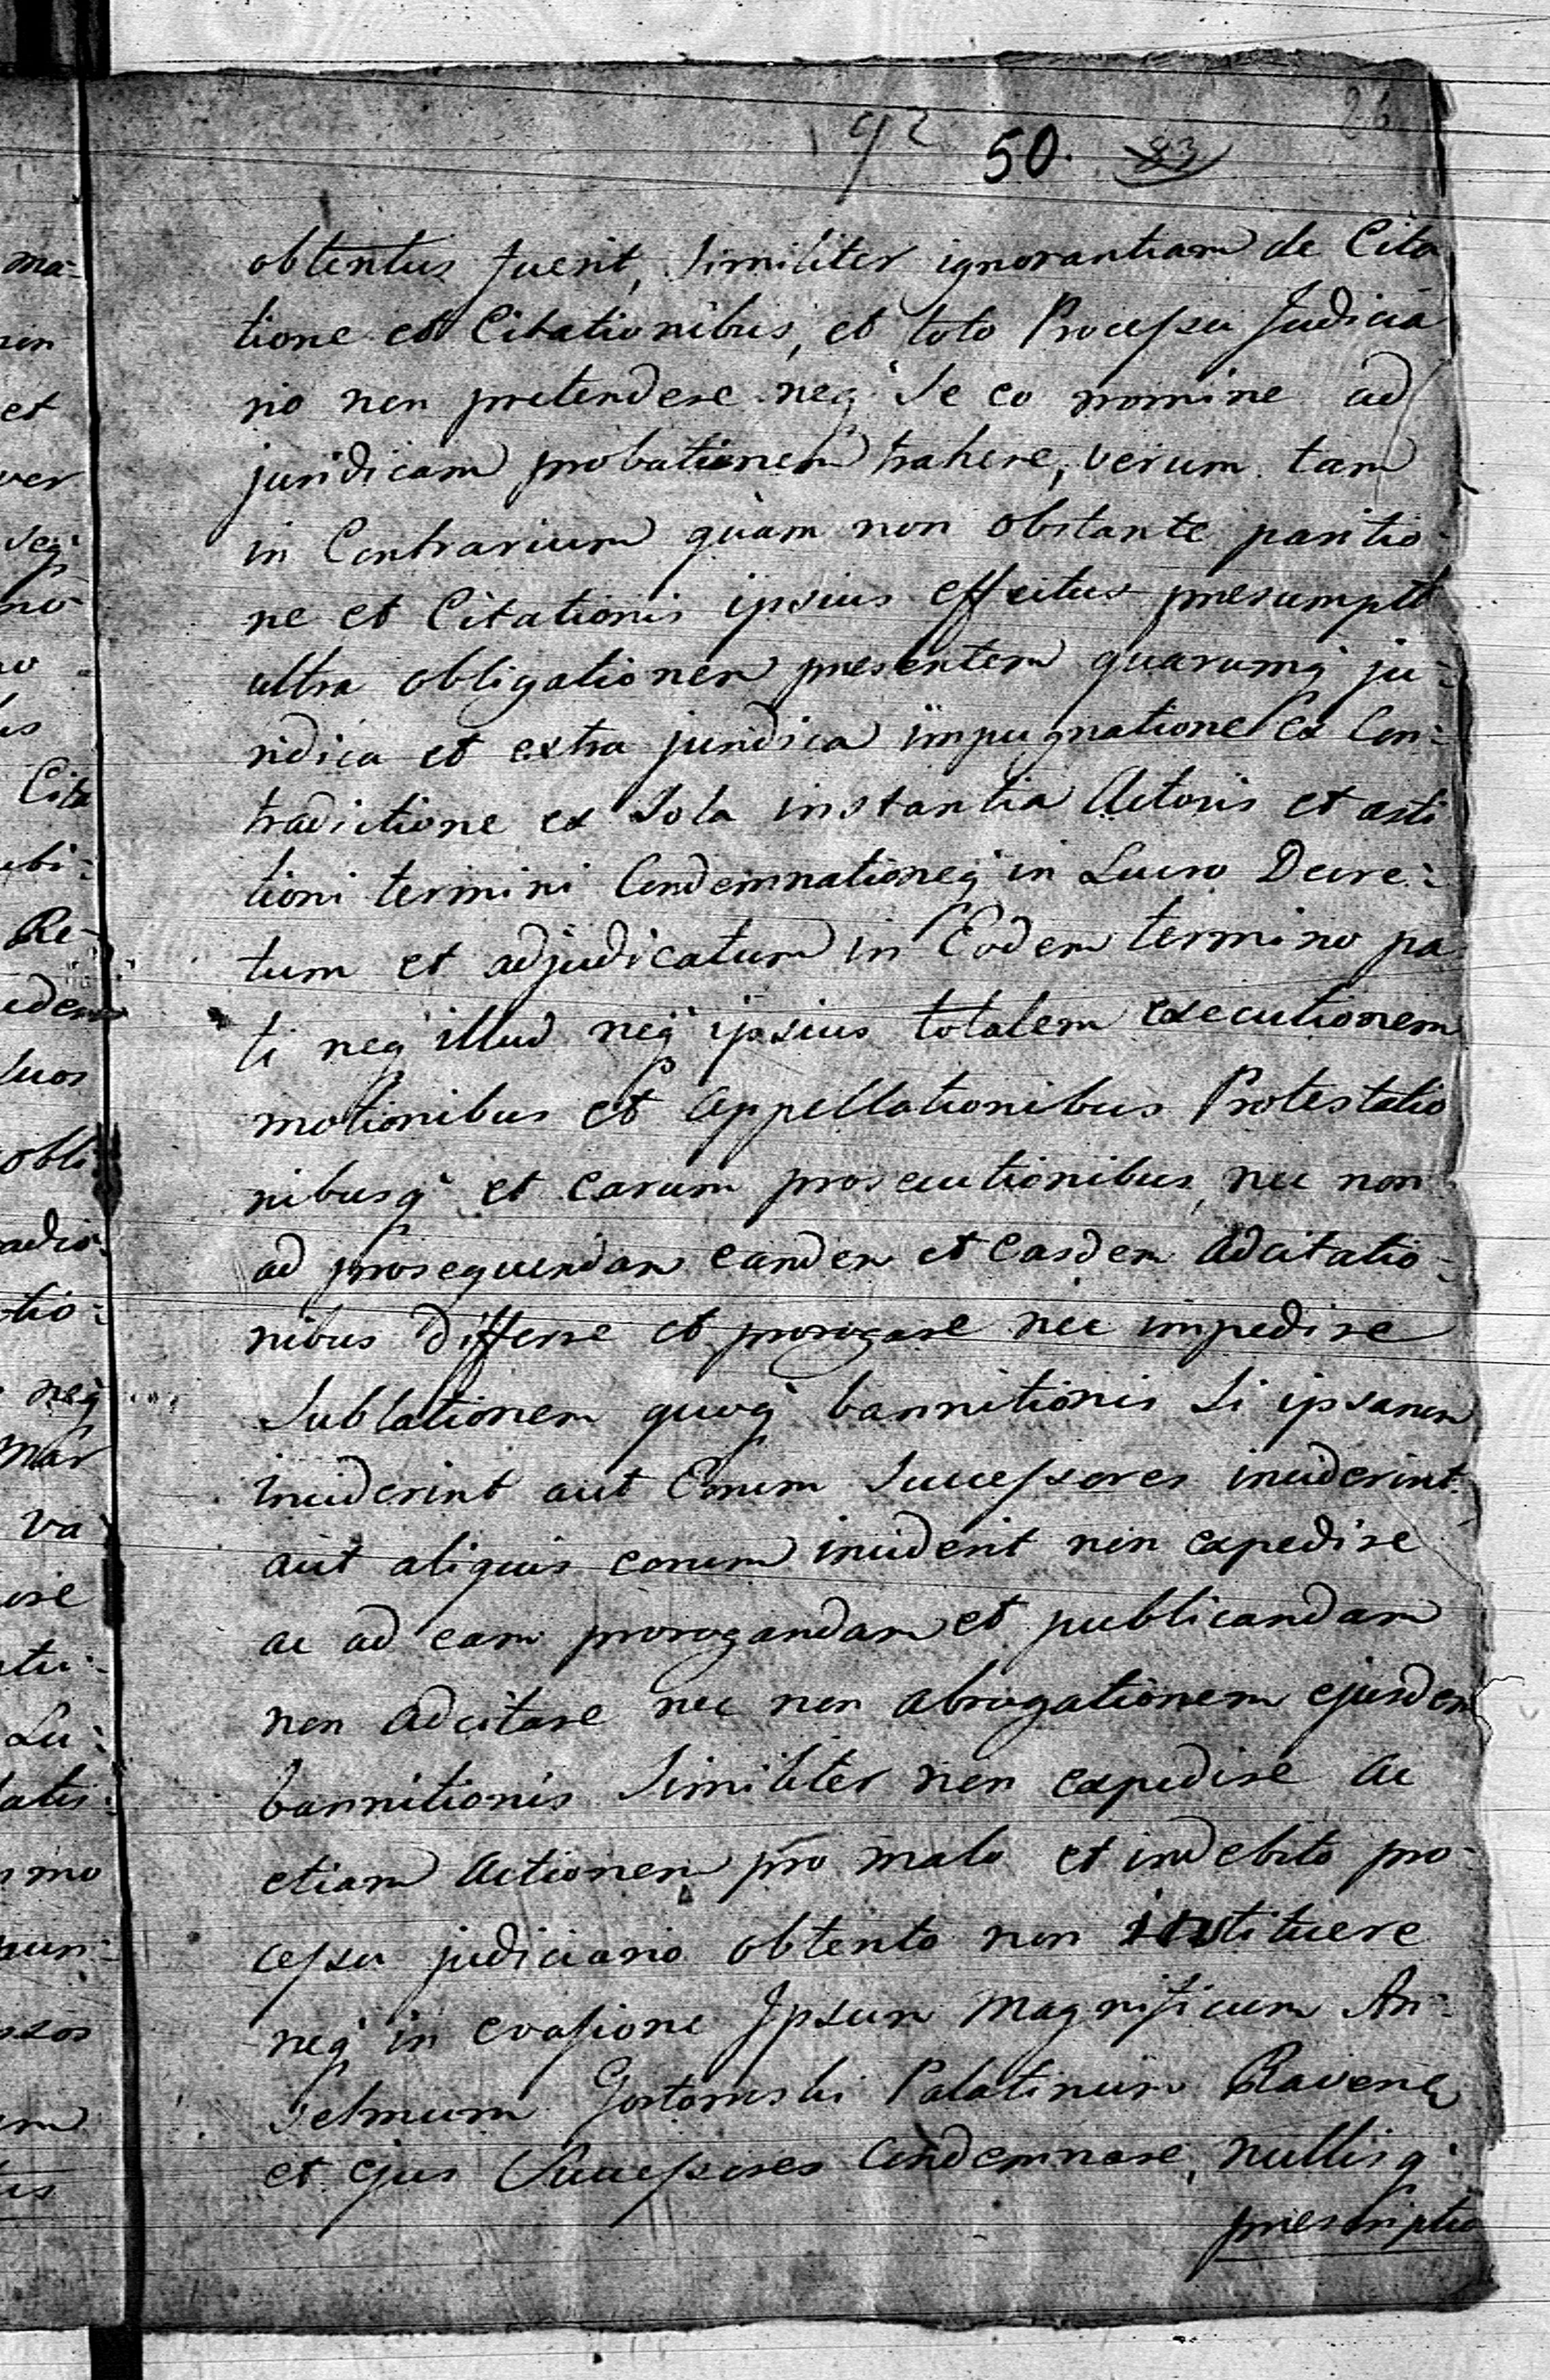 92 50. 83 26
obtentus fuerit, Similiter ignorantiam de Cita
tione et Citationibus, et toto Processu Judicia
rio non pretendere neq̃ Se eo nomine ad
juridicam probationem trahere, verum tam
in Contrarium quàm non obstante paritio-
ne et Citationis ipsius effectus presumpt
ultra obligationem presentem quarumq̃ ju-
ridica et extra juridica impugnatione et Con-
tradictione ex Sola instantia Actoris et asti
tioni termini Condemnationeq̃ in Lucro Decre-
tum et adjudicatum in Eodem termino pa
ti neq̃ illud neq̃ ipsius totalem executionem
motionibus et Appellationibus Protestatio
nibusq̃ et earum prosecutionibus, nec non
ad prosequendam eandem et Easdem Adcitatio-
nibus differre et prorogare nec impedire
Sublationem quoq̃ bannitionis Si ipsamem
inciderint aut Eorum Successores inciderint.
aut aliquis eorum inciderit non expedire
ac ad eam prorogandam et publicandam
non Adcitare nec non abrogationem ejusdem
bannitionis Similiter non expedire Ac
etiam Actionem pro malo et indebito pro-
cessu judiciario obtento non instituere
neq̃ in evasione Ipsum Magnificum An-
selmum Palatinum Ravenæ
et ejus Successores Condemnare, nullisq̃
prescriptio
ma-
non
et
ver
seq̃
no-
Cita
ubi-
Re-
edem
luos
obli
adic
tio-
neq̃
Mar
va
ore
ntu-
Lu-
latis-
mo
ssos
um
tis